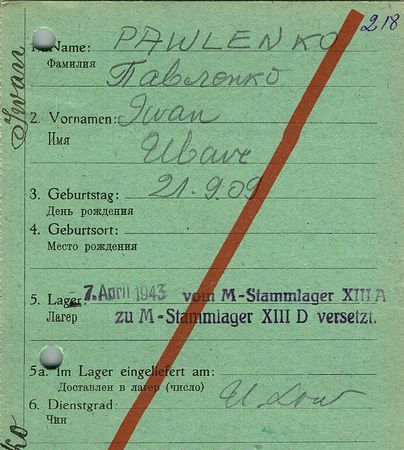 218
1. Name: PAWLENKO
Фамилия Павленко
2. Vornamen: Iwan
Имя Иван
3. Geburtstag: 21.9.09
День рождения
4. Geburtsort:
Место рождения
5. Lager: 7. April 1943 vom M-Stammlager XIII A
Лагерь zu M-Stammlager XIII D versetzt.
5a. Im Lager eingeliefert am:
Доставлен в лагерь (число)
6. Dienstgrad:
Чин
Iwan
ko